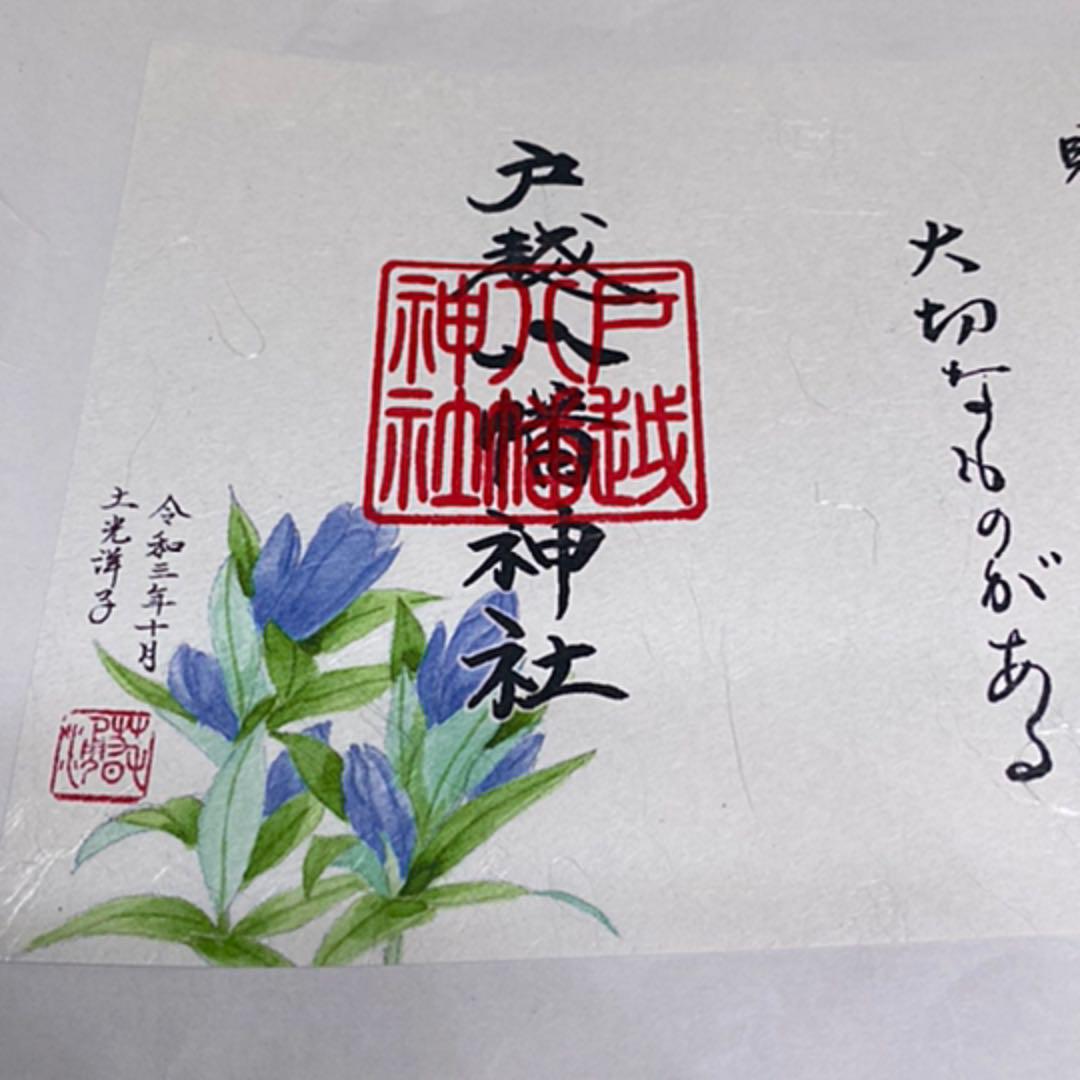 大切なものがある
戸越八幡神社
戸越
八幡
神社
令和三年十月
土光洋子